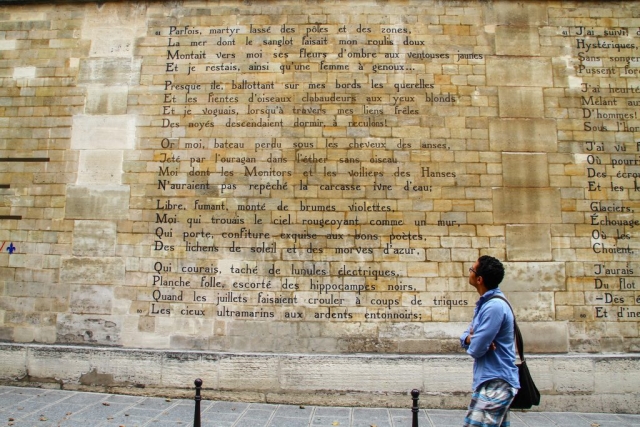 « Parfois, martyr lassé des pôles et des zones,
La mer dont le sanglot faisait mon roulis doux
Montait vers moi ses fleurs d'ombre aux ventouses jaunes
Et je restais, ainsi qu'une femme à genoux...
Presque île, ballottant sur mes bords les querelles
Et les fientes d'oiseaux clabaudeurs aux yeux blonds
Et je voguais, lorsqu'à travers mes liens frêles
Des noyés descendaient dormir, à reculons!
Or moi, bateau perdu sous les cheveux des anses,
Jeté par l'ouragan dans l'éther sans oiseau
Moi dont les Monitors et les voiliers des Hanses
N'auraient pas repêché la carcasse ivre d'eau;
Libre, fumant, monté de brumes violettes,
Moi qui trouais le ciel rougeoyant comme un mur,
Qui porte, confiture exquise aux bons poètes,
Des lichens de soleil et des morves d'azur,
Qui courais, taché de lunules électriques,
Planche folle, escorté des hippocampes noirs,
Quand les juillets faisaient crouler à coups de triques
« Les cieux ultramarins aux ardents entonnoirs;
« J'ai suivi,
Hystériques,
Sans songer
Pussent
J'ai
Mêlant
D'hommes!
Sous
J'ai vu
Où
Des
Et les
Glaciers,
Où les
Choient,
J'aurais
Du flot
-Des
Et